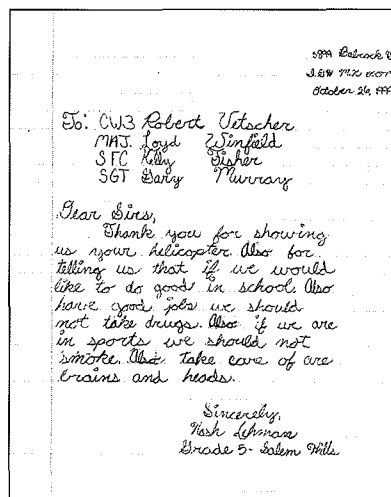 5899 Babcock
October 26, 199
To: CW3 Robert Vetscher
MAJ. Loyd Winfield
SFC Kelly Fisher
SGT Gary Murray
Dear Sirs,
Thank you for showing
us your helicopter. Also for
telling us that if we would
like to do good in school. Also
have good jobs we should
not take drugs. Also if we are
in sports we should not
smoke. Also take care of are
brains and heads.
Sincerely,
Nosh Lehman
Grade 5- Salem Hills